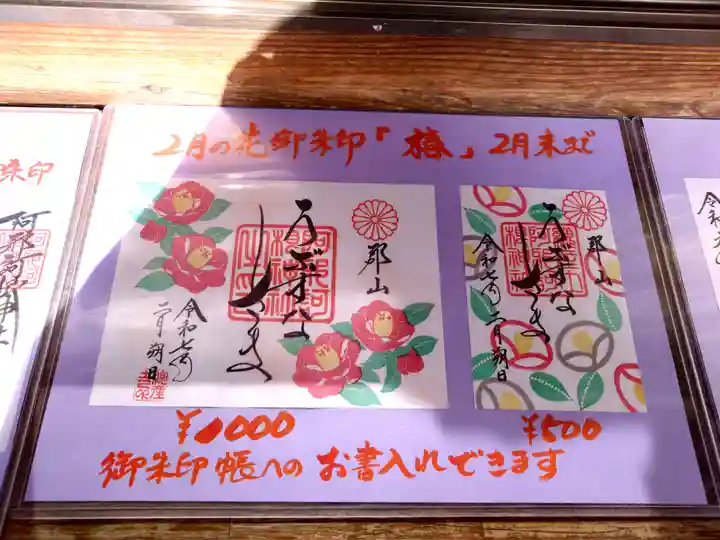 2月の花御朱印「椿」2月末まで
郡山
うぶすな
令和七年
二月朔日
¥1000
郡山
うぶすな
令和七年二月朔日
¥500
御朱印帳へのお書入れできます
朱印